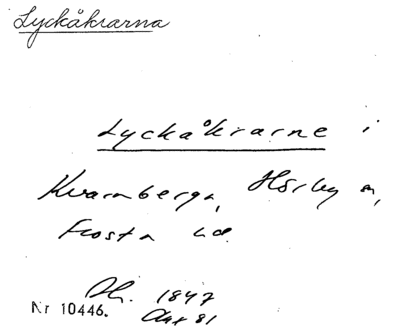 Lyckåkrarna
Lyckåkrarne i
Kvarnberga, Hörby sn,
Frosta hd.
Dh. 1847
Nr 10446. Akt 81